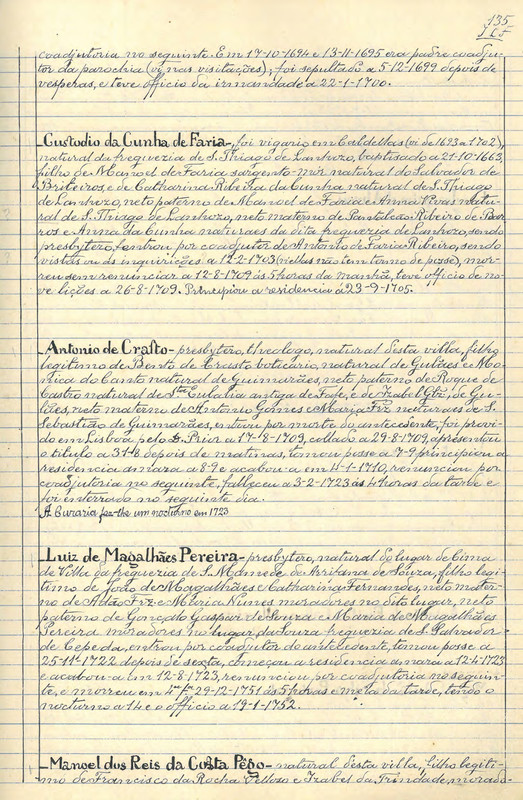 135
coadjutoria no seguinte. Em 17-10-1694 e 13-11-1695 era padre coadju-
tor da parochia (vi, nas visitações); foi sepultado a 5-12-1699 depois de
vesperas, e teve officio da irmandade a 22-1-1700.
Custodio da Cunha de Faria-, foi vigario em Caldellas (vi de 1693 a 1702),
natural da freguezia de S. Thiago de Lanhozo, baptisado a 21-10-1663,
filho de Manoel de Faria sargento-mor natural do Salvador de
Briteiros e de Catharina Ribeira da Cunha natural de S. Thiago
de Lanhozo, neto paterno de Manoel de Faria e Anna Vivas natu-
ral de S. Thiago de Lanhozo, neto materno de Pantaleão Ribeiro de Bar-
ros e Anna da Cunha naturaes da dita freguezia de Lanhozo, sendo
presbytero, entrou por coadjutor de Antonio de Faria Ribeiro, sendo
vistas as inquirições a 12-2-1703 (nellas não tem termo de posse), mor-
reu sem renunciar a 12-8-1709 ás 5 horas da manhã, teve officio de no-
ve lições a 26-8-1709. Principiou a residencia a 23-9-1705.
Antonio de Crasto- presbytero, theologo, natural d'esta villa, filho
legitimo de Bento de Crasto boticario, natural de Gulães e Mo-
nica do Canto natural de Guimarães, neto paterno de Roque de
Castro natural de Stª Eulalia antiga de Fafe, e de Izabel Glz, de Gu-
lães, neto materno de Antonio Gomes e Maria Frz naturaes de S.
Sebastião de Guimarães, entrou por morte do antecedente, foi provi-
do em Lisboa pelo D. Prior a 17-8-1709, collado a 29-8-1709, apresentou
o titulo a 31-8 depois de matinas, tomou posse a 7-9 principiou a
residencia amara a 8-9 e acabou-a em 4-1-1710, renunciou por
coadjutoria no seguinte, falleceu a 3-2-1723 ás 4 horas da tarde e
foi enterrado no seguinte dia.
A Curaria fez-lhe um nocturno em 1723
Luiz de Magalhães Pereira- presbytero, natural do lugar de Cima
de Villa da freguezia de S. Mamede de Arrifana de Souza, filho legi-
timo de João de Magalhães e Catharina Fernandes, neto mater-
no de Adão Frz e Maria Nunes moradores no dito lugar, neto
paterno de Gonçalo Gaspar de Souza e Maria de Magalhães
Pereira moradores no lugar da Souza freguezia de S. Salvador
de Cepeda, entrou por coadjutor do antecedente, tomou posse a
25-11-1722 depois de sexta, começou a residencia amara a 12-4-1723
e acabou-a em 12-8-1723, renunciou por coadjutoria no seguin-
te, e morreu em 4ª fª 29-12-1751 ás 5 horas e meia da tarde, tendo o
nocturno a 14 e o officio a 19-1-1752.
Manoel dos Reis da Costa Pêgo- natural d'esta villa, filho legiti-
mo de Francisco da Rocha Velloso e Izabel da Trindade, morado-